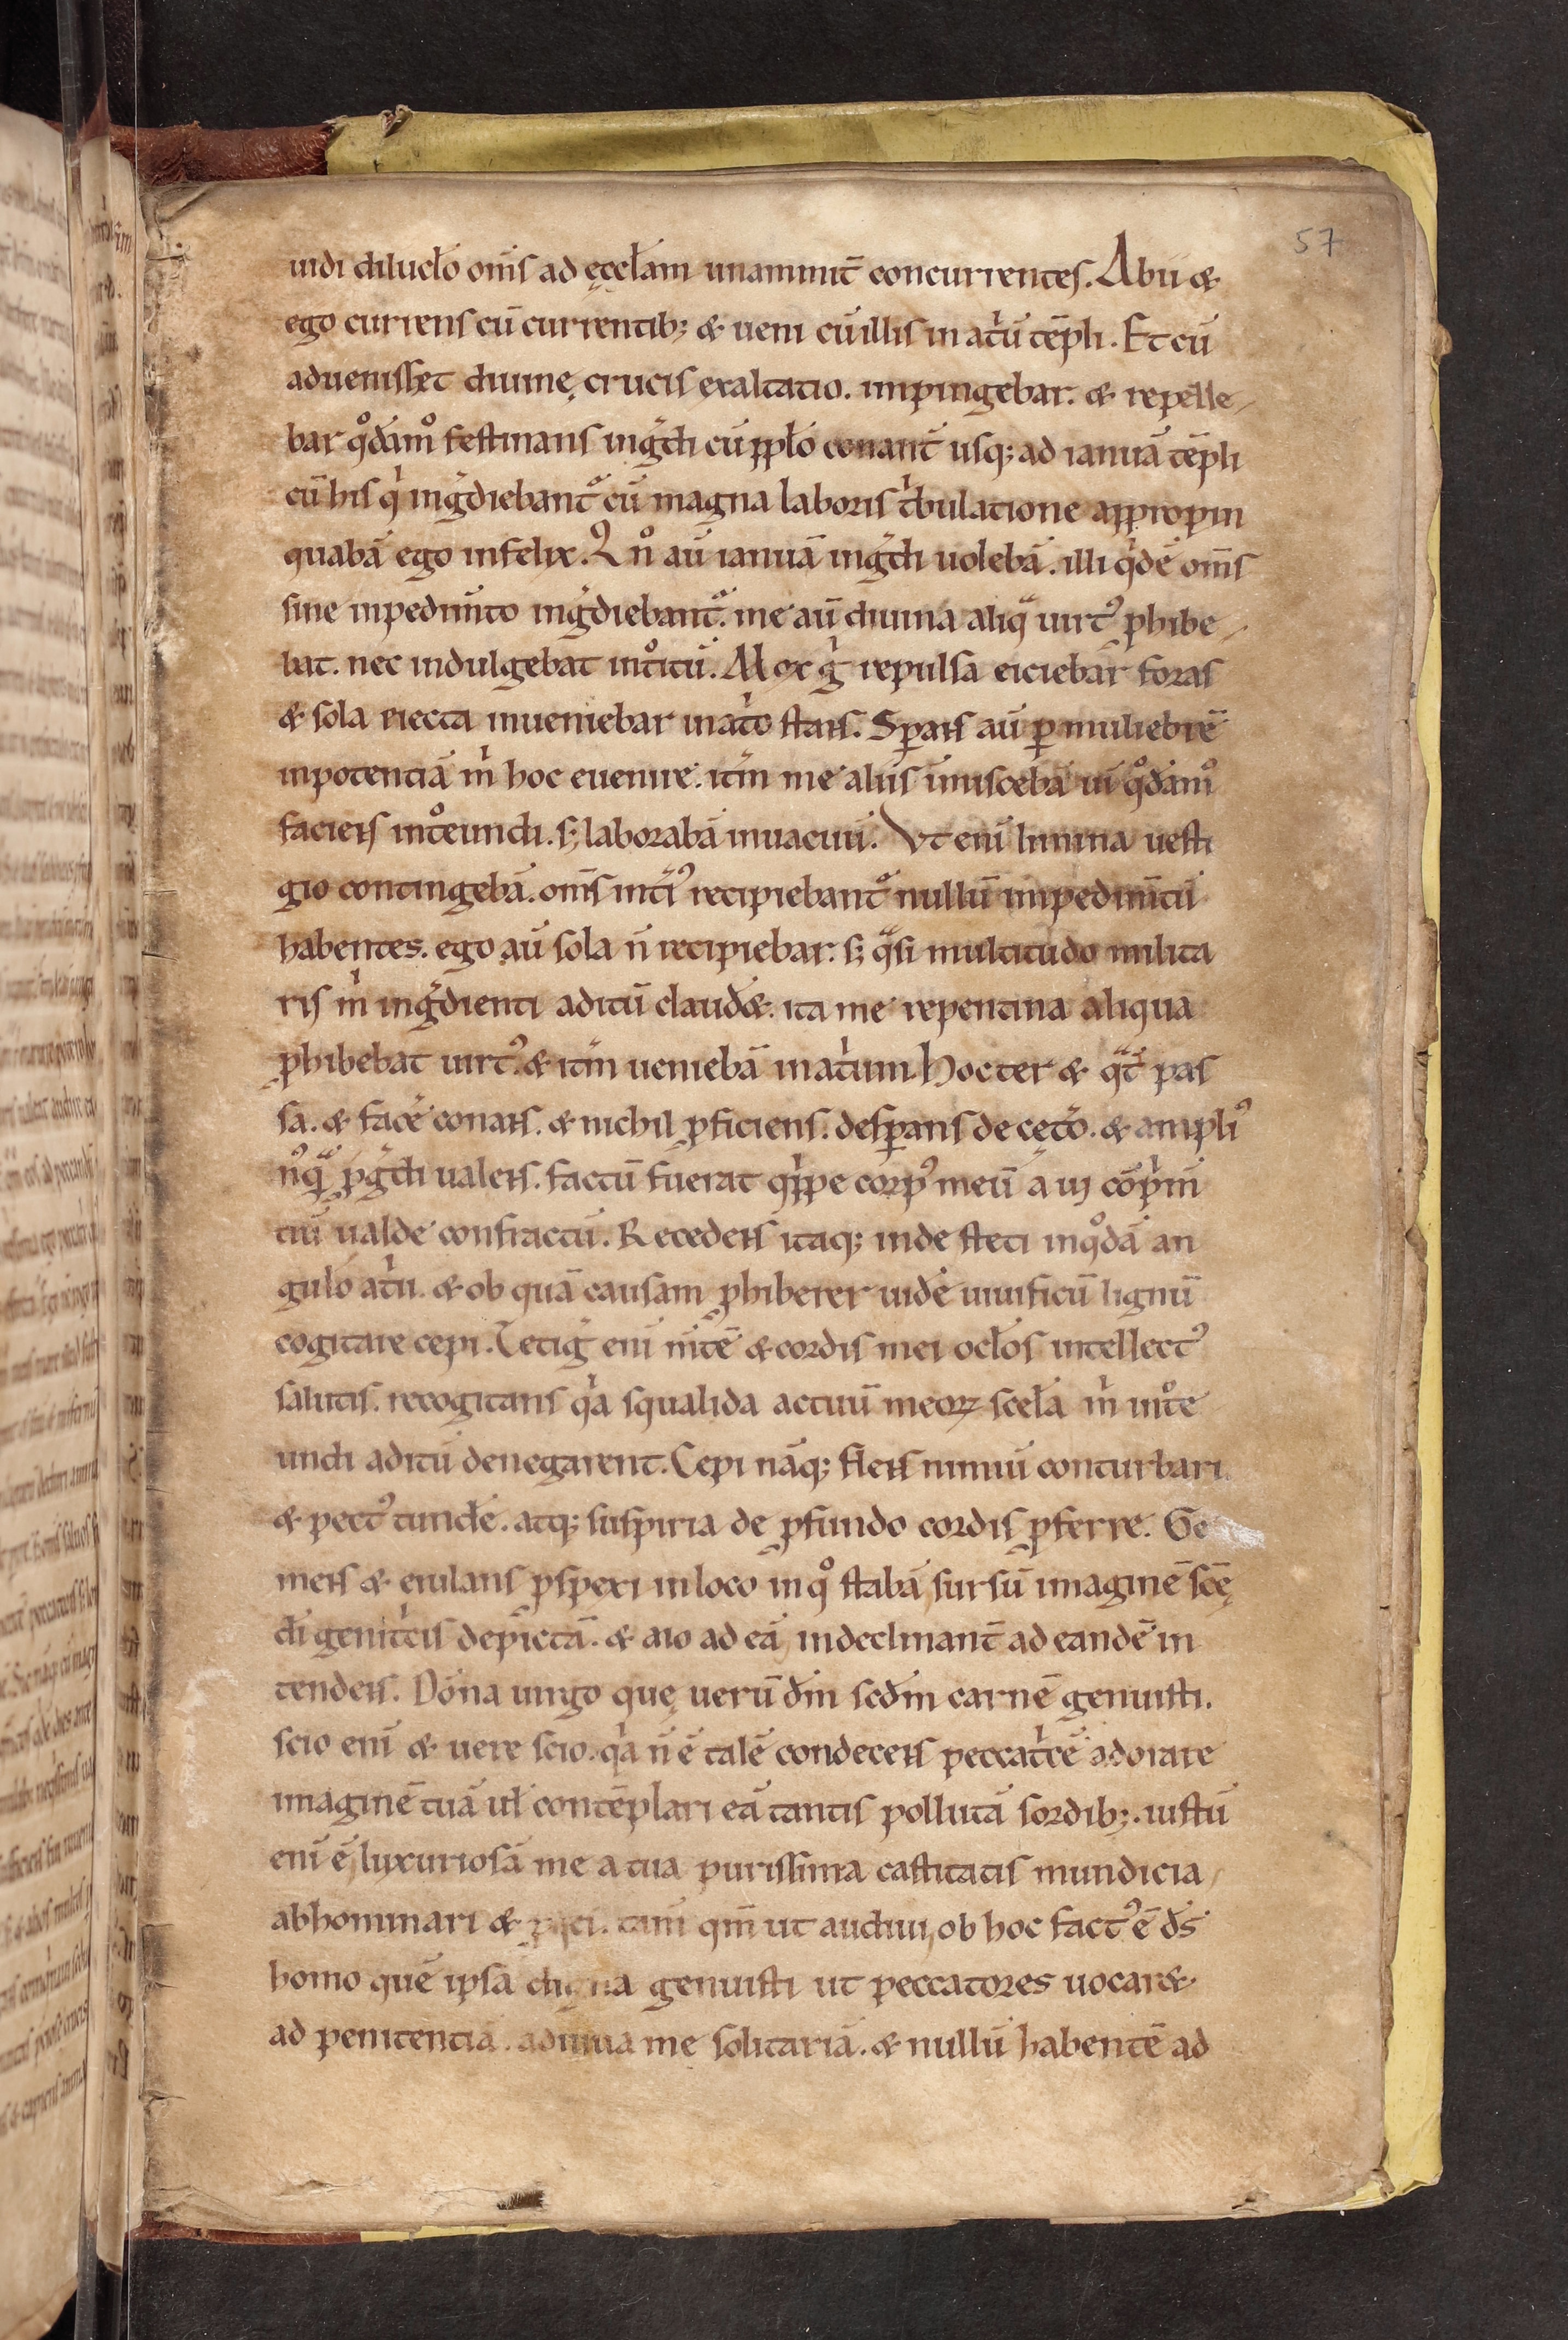 57
uidi diluclo om̄s ad ęcclam unanimit̄ concurrentes. Abii &
ego currens cū currentib; & ueni cū illis in at͛ū tēpli. Et cū
aduenisset diuinę crucis exaltatio. impingebar. & repelle-
bar q̊dam̊ festinans ing̃di cū pplo conant̄ usq; ad ianuā tēpli
cū his qͥ ing̃diebant̊ cū magna laboris tͥbulatione appropin
quabā ego infelix. Qn̊ aū ianuā ing̃di uolebā. illi qͥdē om̄s
sine inpedim̄to ing̃diebant̊. me aū diuina aliqͣ uirt᾽ ꝓhibe-
bat. nec indulgebat int̊itū. Mox gͥ repulsa eiciebar foras
& sola eiecta inueniebar in atͥo stans. Sꝑans aū ꝑ muliebrē
inpotentiā m̍ hoc euenire. itm̄ me aliis inmiscebā ui q̊dam̊
faciens int̊eundi. s; laborabā in uacuū. Vt eni limina uesti
gio contingebā. om̄s inti᾽ recipiebant̊ nullū impedim̄tū
habentes. ego aū sola n̄ recipiebar. s; qͣsi multitudo milita
ris m̍ ing̃dienti aditū claud&. ita me repentina aliqua
ꝓhibebat uirt᾽. & itm̄ ueniebā in atͥum. Hoc ter & qͣt͛ pas
sa. & face͛ conans. & nichil ꝓficiens. desꝑans de cęt͛o. & ampli᾽
n᾽qͣ ꝓg̃di ualens. factū fuerat qͥppe corp᾽ meū a ui cōpͥm̄
tiū ualde confractū. Recedens itaq; inde steti in q̊dā an
gulo atͥi. & ob quā causam ꝓhiberer uide͛ uiuificū lignū
cogitare cepi. Tetig̃ eni m̄tē & cordis mei oclos intellect᾽
salutis. recogitans qͥa squalida actuū meoꝝ scela m̍ int̊e
undi aditū denegarent. Cepi nāq; flens nimiū conturbari
& pect᾽ tunde͛. atq; suspiria de ꝓfundo cordis ꝓferre. Ge
mens & eiulans ꝓspexi in loco in q̊ stabā sursū imaginē scę̄
di genitͥcis depictā. & aio ad eā indeclinant̄ ad eandē in
tendens. Dōna uirgo quę uerū dm̄ scdm̄ carnē genuisti.
scio eni & uere scio. qͥa n̄ ē talē condecens peccatͥcē adorare
imaginē tuā ul contēplari eā tantis pollutā sordib;. iustū
eni ē luxuriosā me a tua purissima castitatis mundicia
abhominari & tam̄ qm̄ ut audiui, ob hoc fact᾽ ē ds̄
homo quē ipsa digna genuisti ut peccatores uocar&
ad penitentiā. adiuua me solitariā. & nullū habentē ad